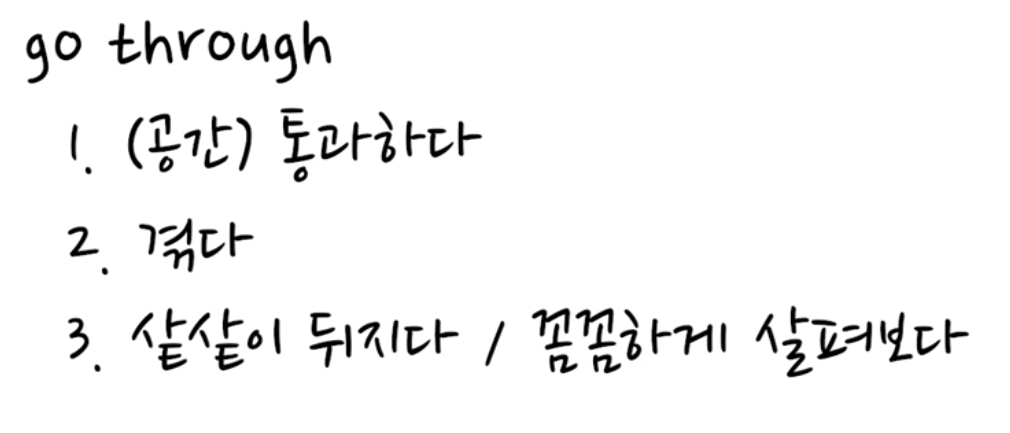 go through
1. (공간) 통과하다
2. 겪다
3. 샅샅이 뒤지다 / 꼼꼼하게 살펴보다